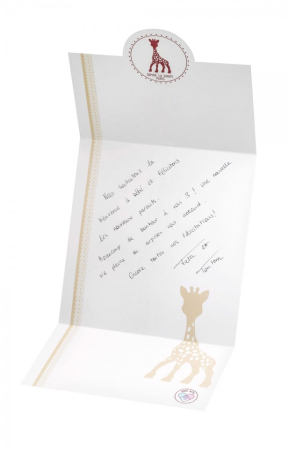 SOPHIE LA GIRAFE
Nous souhaitons la
bienvenue à bébé et félicitons
les nouveaux parents.
Beaucoup de bonheur à vous 3 ! Une nouvelle
vie pleine de surprises vous attend
Encore toutes nos félicitations!
et